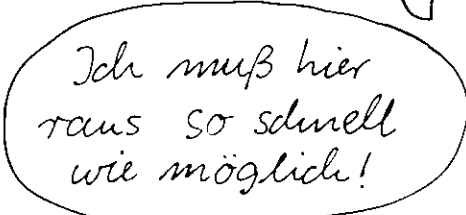 Ich muß hier
raus so schnell
wie möglich!